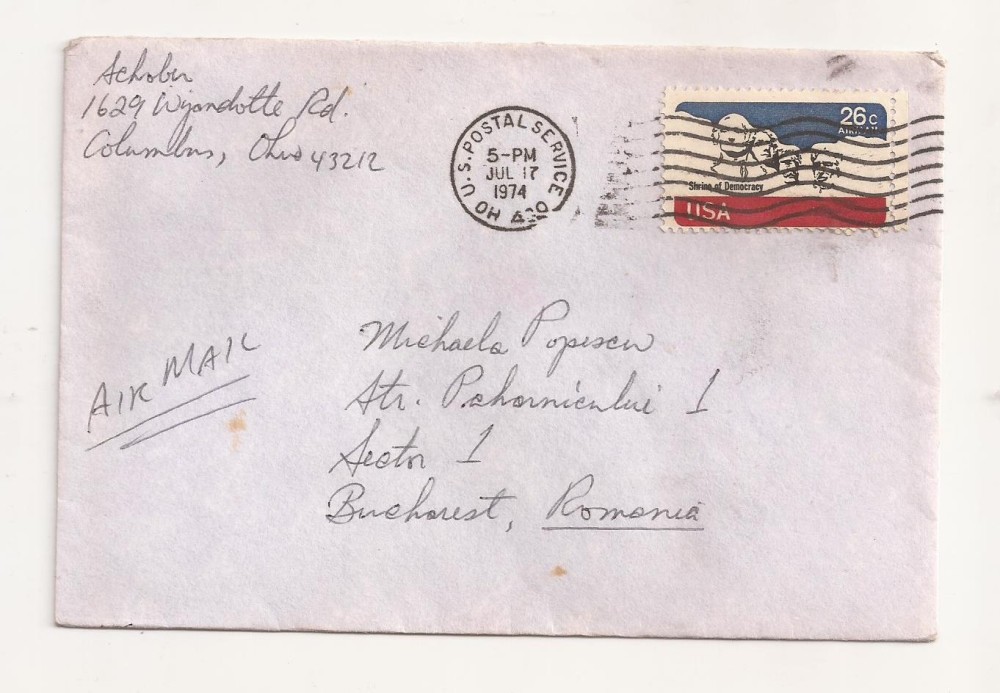 Schober
1629 Wyandotte Rd.
Columbus, Ohio 43212
U.S. POSTAL SERVICE OH
5-PM
JUL 17
1974
26c
AIRMAIL
Shrine of Democracy
USA
AIR MAIL
Michaela Popescu
Str. Paharnicului 1
Sector 1
Bucharest, Romania